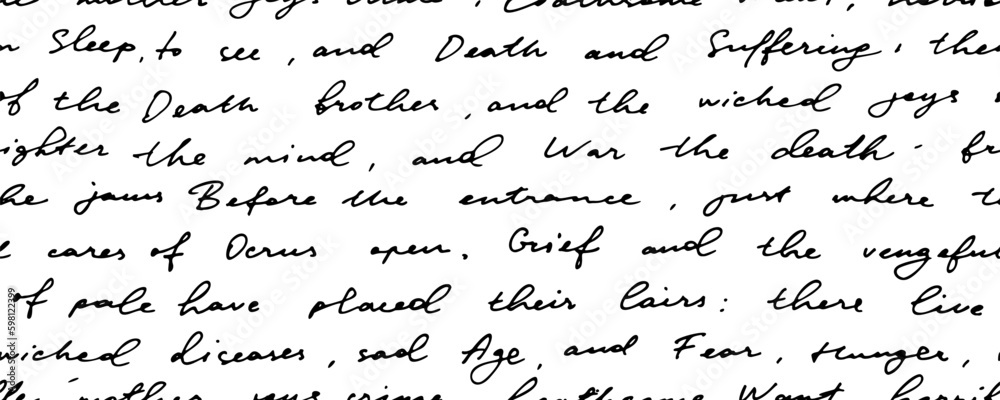 mother joys crime, loathsome Want,
Sleep, to see, and Death and Suffering, the
of the Death brother, and the wiched joys
ighter the mind, and War the death. fr
he jaws Before the entrance, just where t
cares of Ocrus open. Grief and the vengeful
of pale have placed their lairs: there live
wiched diseases, sad Age, and Fear, Hunger,
mother joys crime, loathsome Want, horrib
Adobe Stock | #598122399